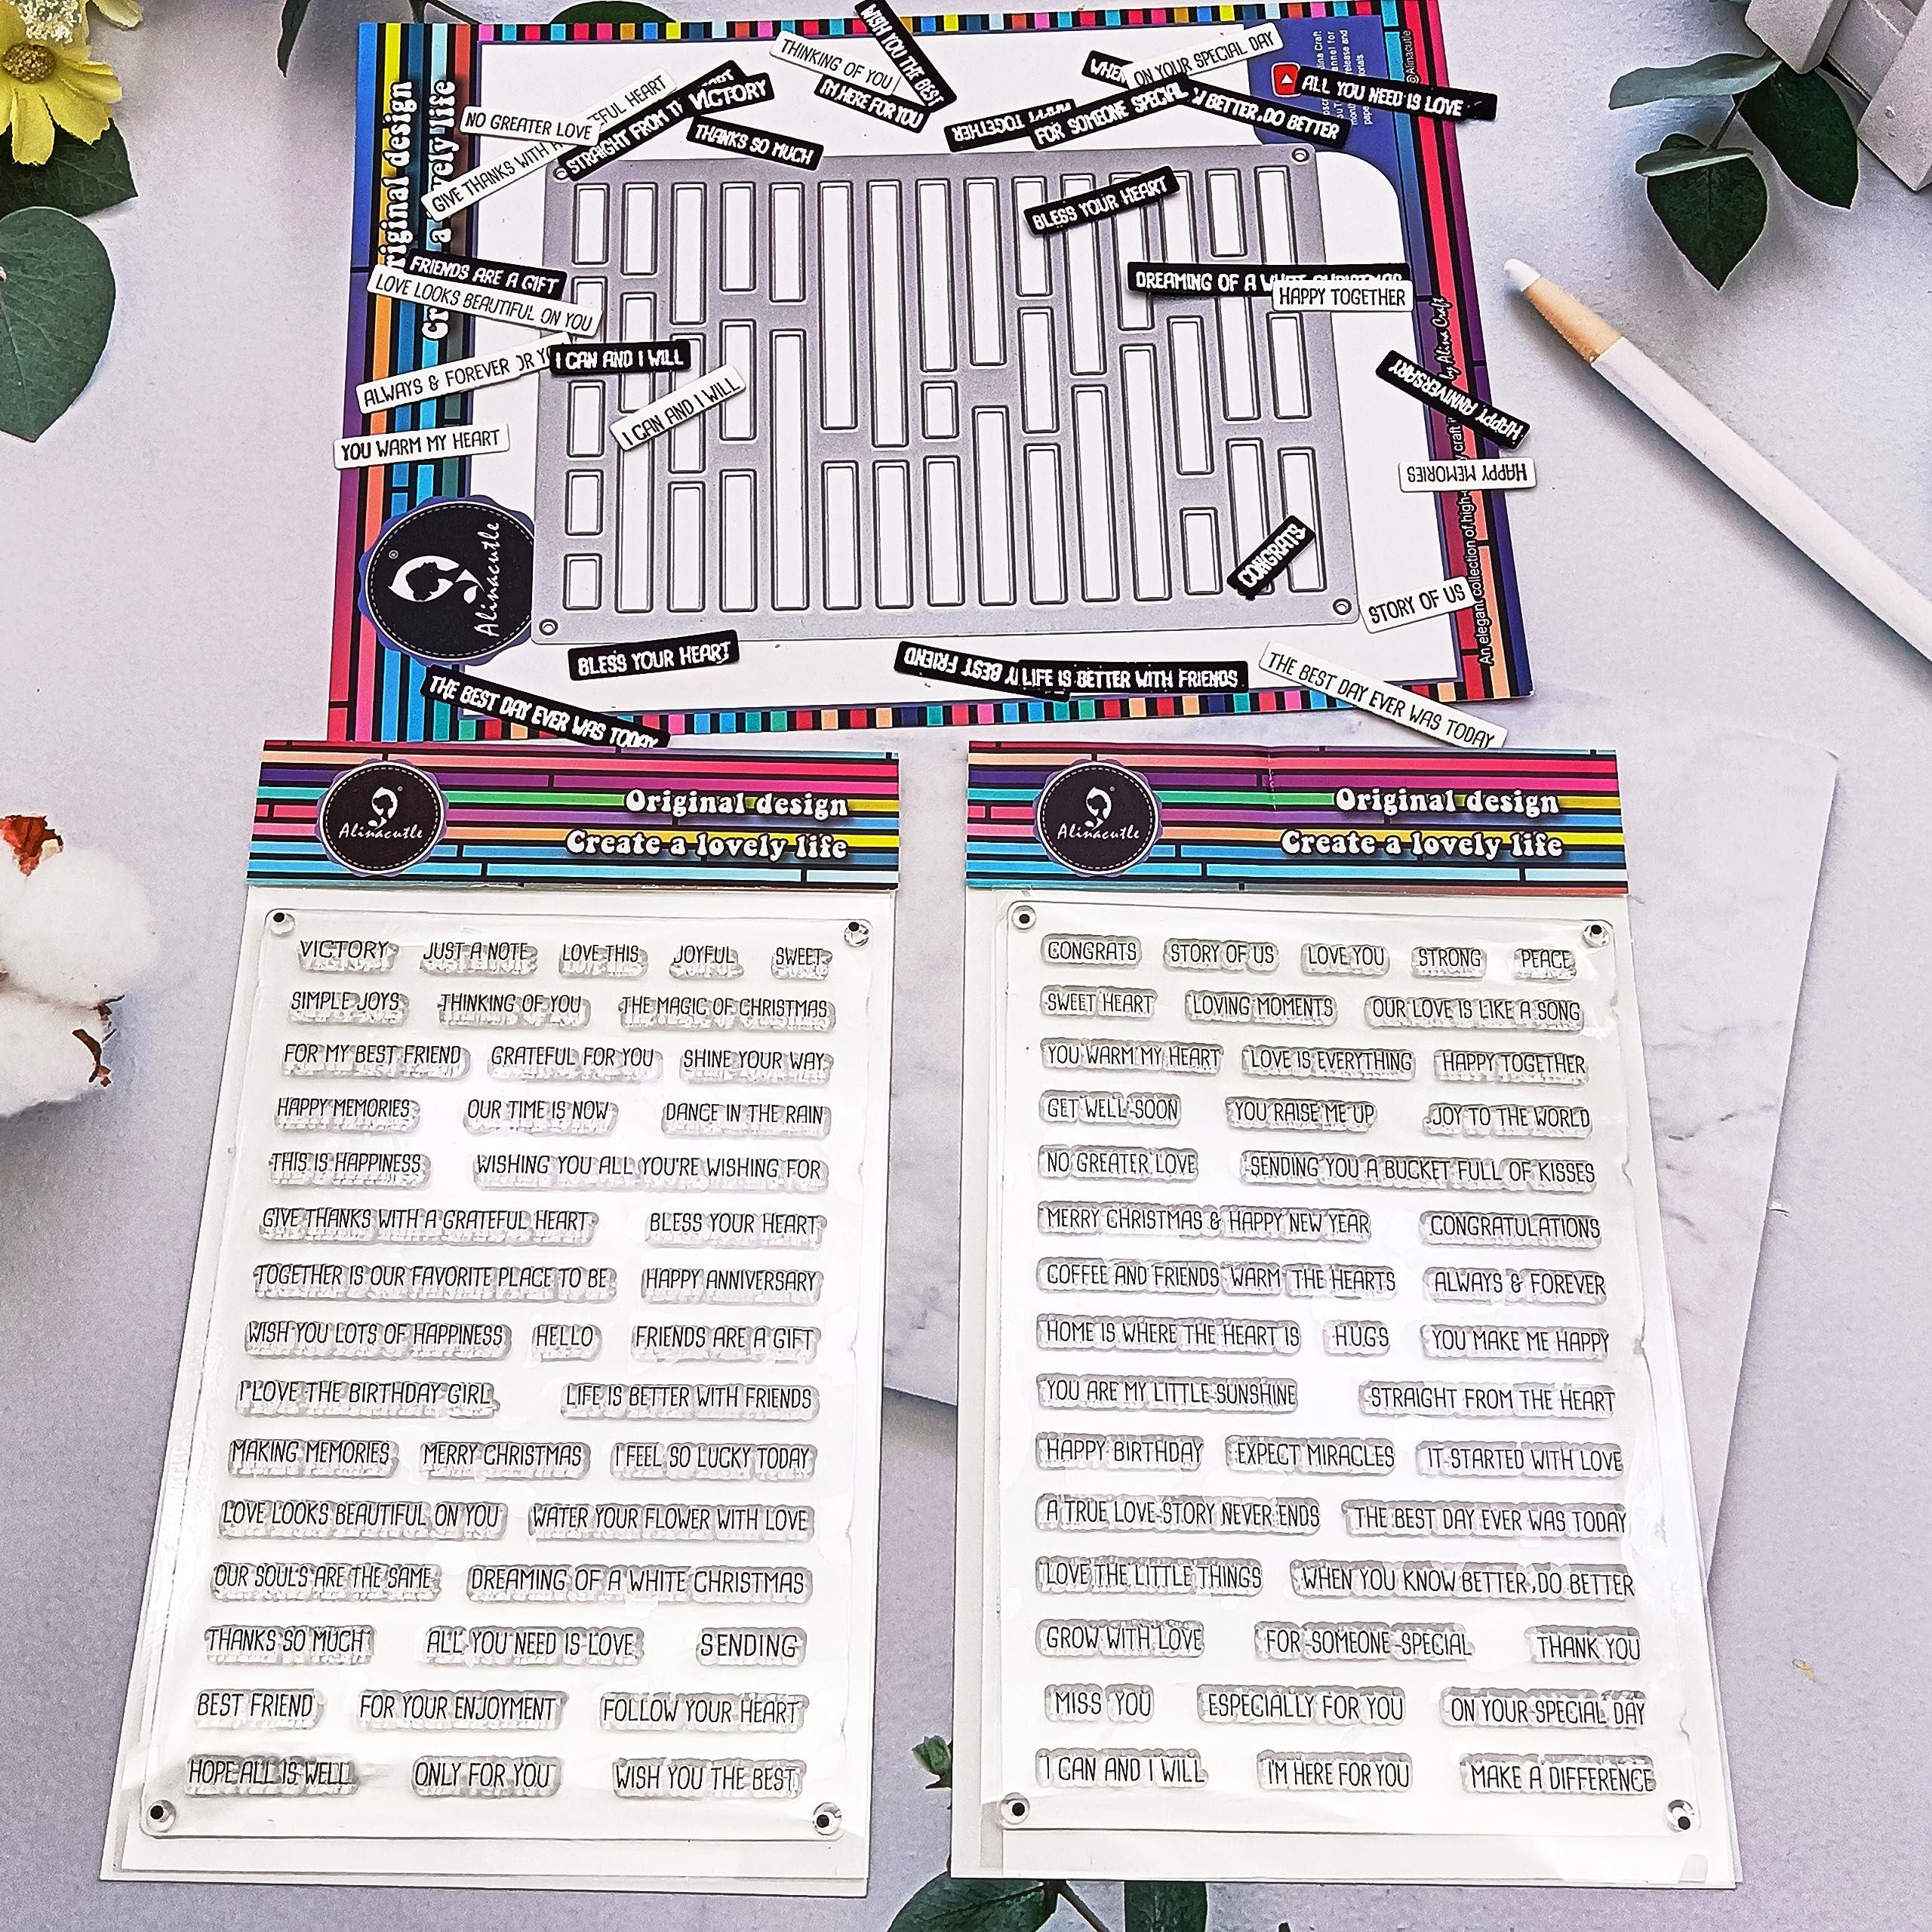 WISH YOU THE BEST
THINKING OF YOU
I'M HERE FOR YOU
WHEN
ON YOUR SPECIAL DAY
ALL YOU NEED IS LOVE
@Alinacutle
EFUL HEART
VICTORY
STRAIGHT FROM
NO GREATER LOVE
GIVE THANKS WITH
THANKS SO MUCH
HAPPY TOGETHER
FOR SOMEONE SPECIAL
BETTER,DO BETTER
BLESS YOUR HEART
riginal design
a lovely life
FRIENDS ARE A GIFT
LOVE LOOKS BEAUTIFUL ON YOU
DREAMING OF A WHITE CHRISTMAS
HAPPY TOGETHER
ALWAYS & FOREVER
I CAN AND I WILL
I CAN AND I WILL
YOU WARM MY HEART
by Alina Craft
HAPPY ANNIVERSARY
HAPPY MEMORIES
An elegant collection of high-
Alinacutle
CONGRATS
STORY OF US
BLESS YOUR HEART
BEST FRIEND
LIFE IS BETTER WITH FRIENDS
THE BEST DAY EVER WAS TODAY
THE BEST DAY EVER WAS TODAY
Alinacutle
Original design
Create a lovely life
VICTORY JUST A NOTE LOVE THIS JOYFUL SWEET
SIMPLE JOYS THINKING OF YOU THE MAGIC OF CHRISTMAS
FOR MY BEST FRIEND GRATEFUL FOR YOU SHINE YOUR WAY
HAPPY MEMORIES OUR TIME IS NOW DANCE IN THE RAIN
THIS IS HAPPINESS WISHING YOU ALL YOU'RE WISHING FOR
GIVE THANKS WITH A GRATEFUL HEART BLESS YOUR HEART
TOGETHER IS OUR FAVORITE PLACE TO BE HAPPY ANNIVERSARY
WISH YOU LOTS OF HAPPINESS HELLO FRIENDS ARE A GIFT
I LOVE THE BIRTHDAY GIRL LIFE IS BETTER WITH FRIENDS
MAKING MEMORIES MERRY CHRISTMAS I FEEL SO LUCKY TODAY
LOVE LOOKS BEAUTIFUL ON YOU WATER YOUR FLOWER WITH LOVE
OUR SOULS ARE THE SAME DREAMING OF A WHITE CHRISTMAS
THANKS SO MUCH ALL YOU NEED IS LOVE SENDING
BEST FRIEND FOR YOUR ENJOYMENT FOLLOW YOUR HEART
HOPE ALL IS WELL ONLY FOR YOU WISH YOU THE BEST
Alinacutle
Original design
Create a lovely life
CONGRATS STORY OF US LOVE YOU STRONG PEACE
SWEET HEART LOVING MOMENTS OUR LOVE IS LIKE A SONG
YOU WARM MY HEART LOVE IS EVERYTHING HAPPY TOGETHER
GET WELL SOON YOU RAISE ME UP JOY TO THE WORLD
NO GREATER LOVE SENDING YOU A BUCKET FULL OF KISSES
MERRY CHRISTMAS & HAPPY NEW YEAR CONGRATULATIONS
COFFEE AND FRIENDS WARM THE HEARTS ALWAYS & FOREVER
HOME IS WHERE THE HEART IS HUGS YOU MAKE ME HAPPY
YOU ARE MY LITTLE SUNSHINE STRAIGHT FROM THE HEART
HAPPY BIRTHDAY EXPECT MIRACLES IT STARTED WITH LOVE
A TRUE LOVE STORY NEVER ENDS THE BEST DAY EVER WAS TODAY
LOVE THE LITTLE THINGS WHEN YOU KNOW BETTER,DO BETTER
GROW WITH LOVE FOR SOMEONE SPECIAL THANK YOU
MISS YOU ESPECIALLY FOR YOU ON YOUR SPECIAL DAY
I CAN AND I WILL I'M HERE FOR YOU MAKE A DIFFERENCE